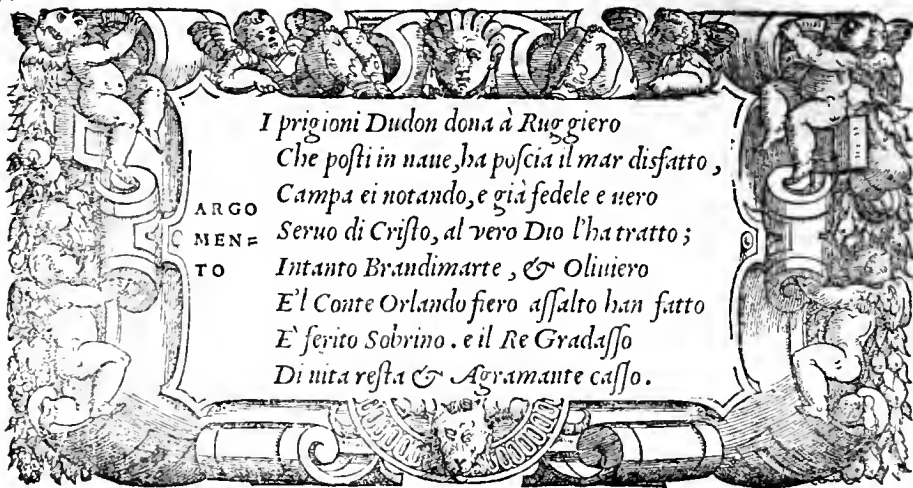 ARGO
MEN=
TO
I prigioni Dudon dona à Ruggiero
Che poſti in naue, ha poſcia il mar disfatto,
Campa ei notando, e già fedele e uero
Seruo di Criſto, al vero Dio l'ha tratto;
Intanto Brandimarte, & Oliuiero
E'l Conte Orlando fiero aſſalto han fatto
E' ferito Sobrino. e il Re Gradaſſo
Di uita reſta & Agramante caſſo.